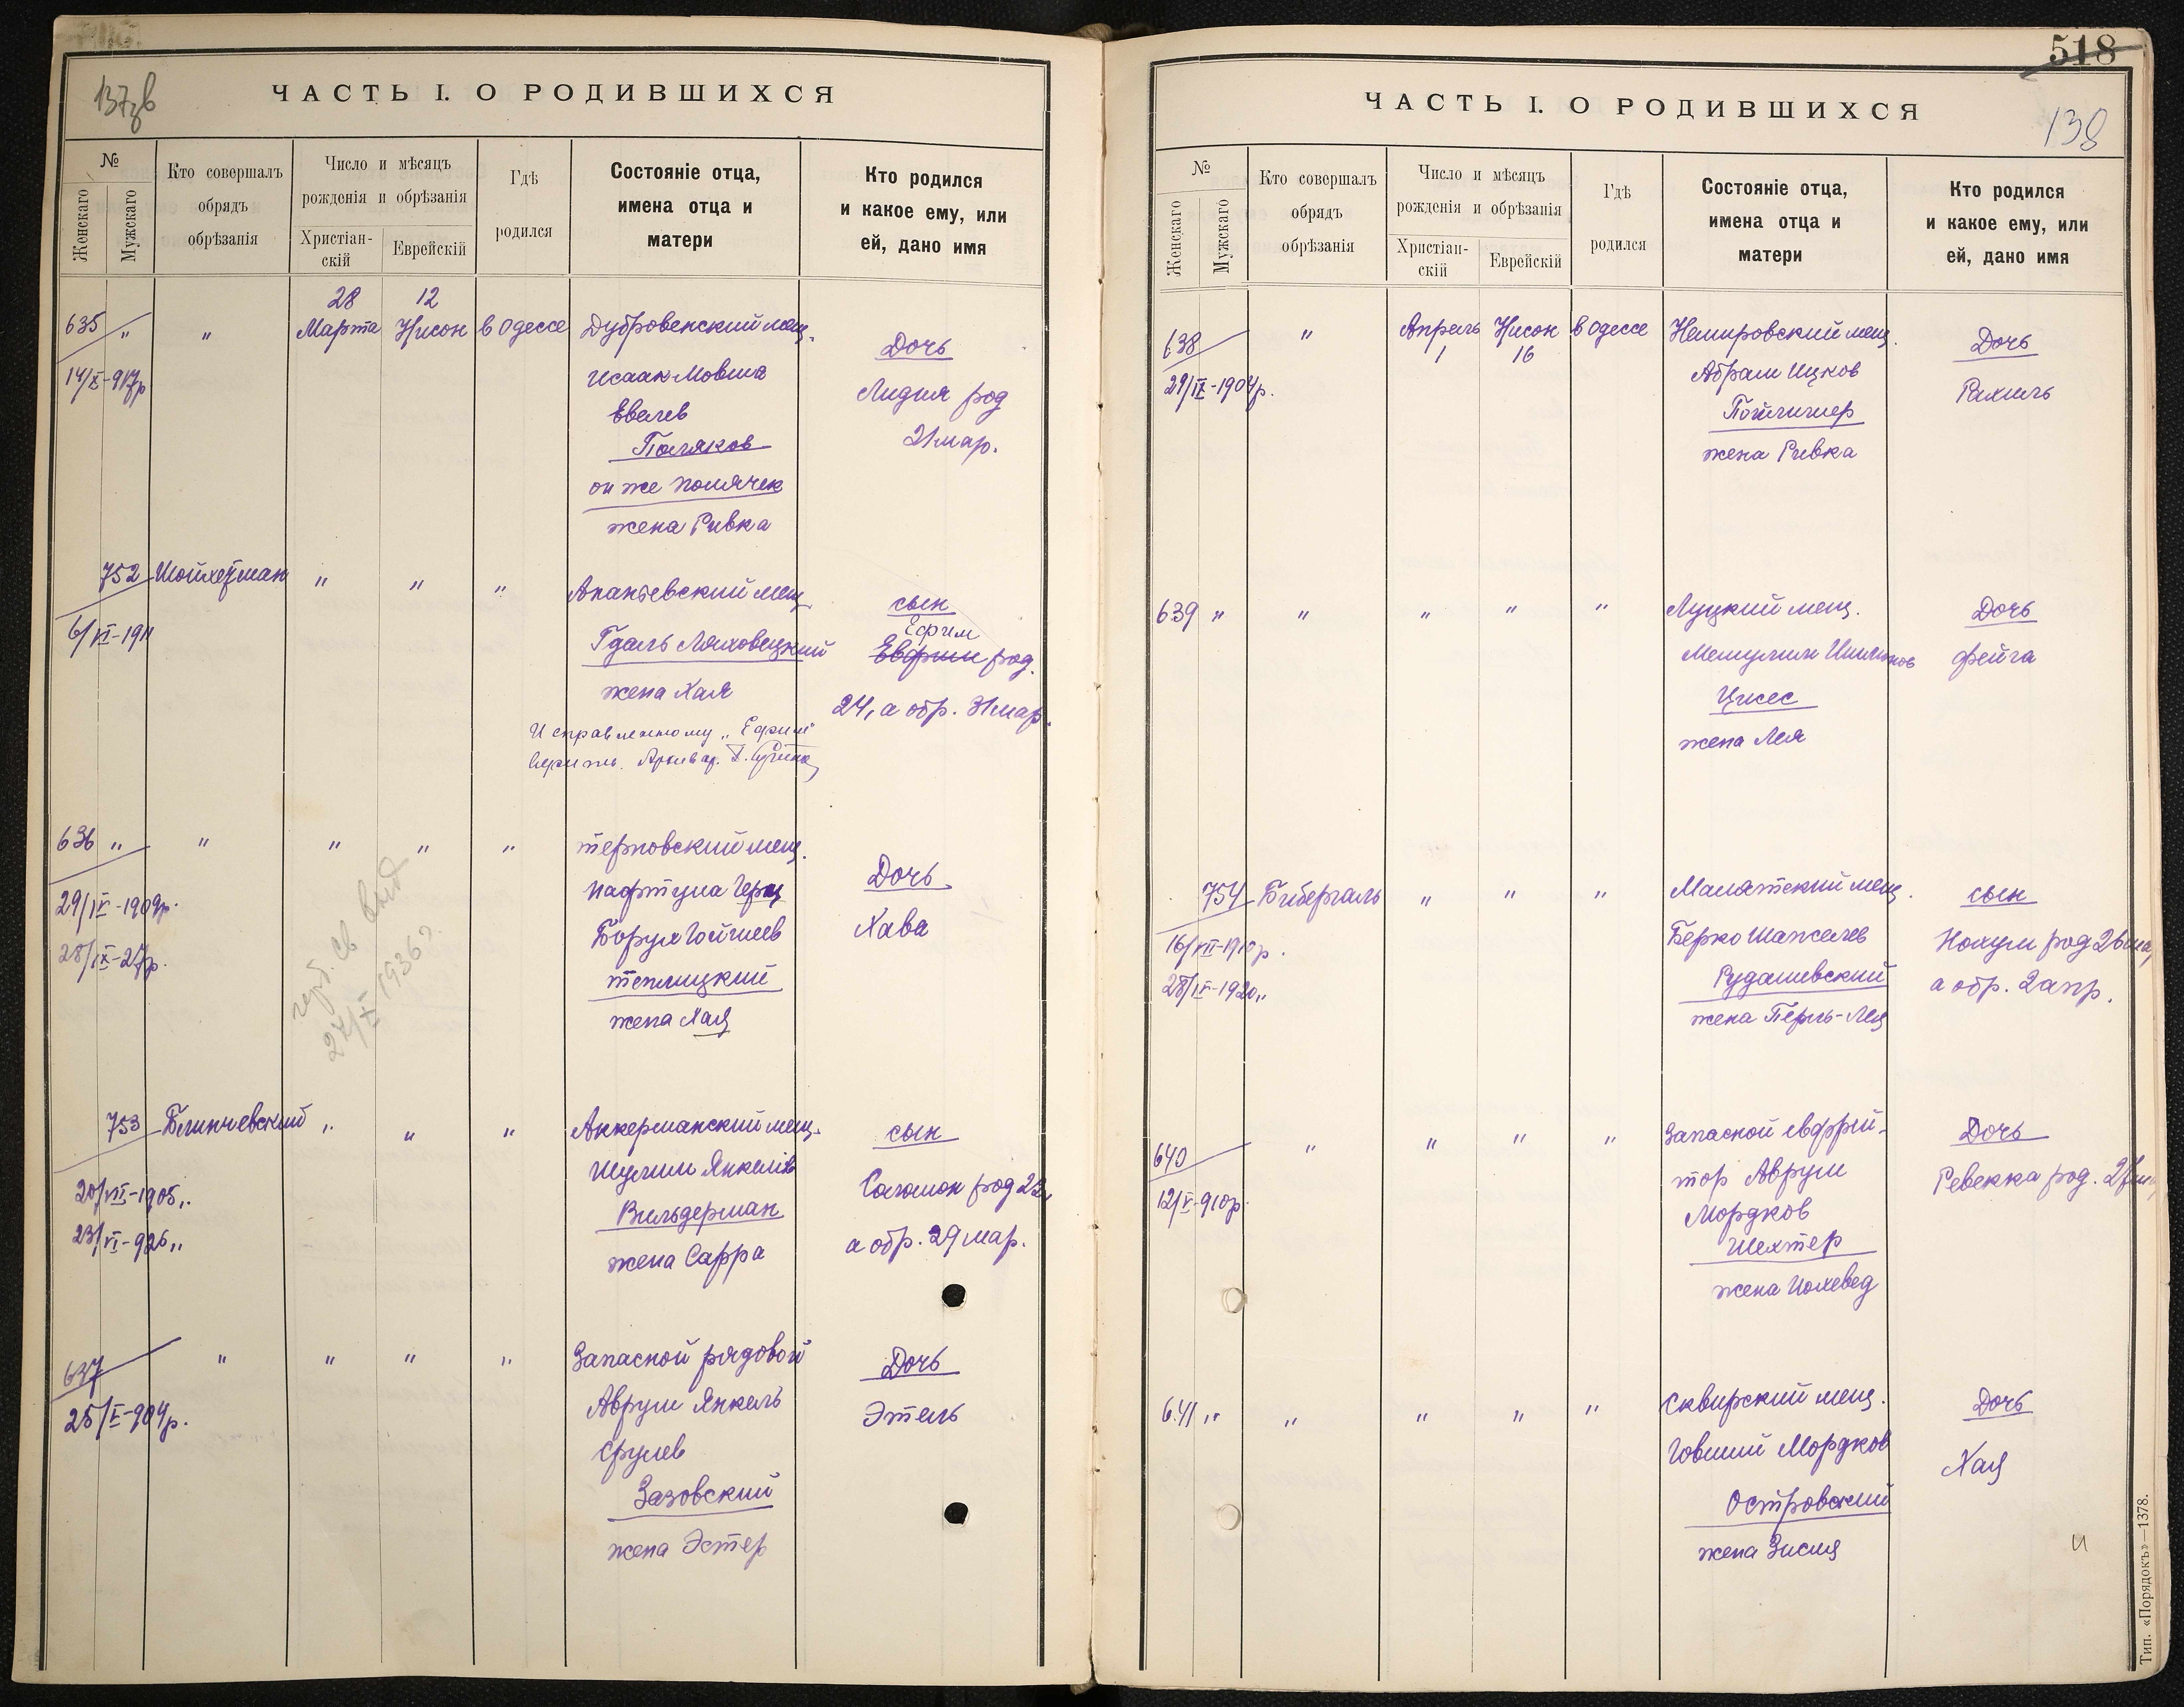 137зв
ЧАСТЬ I. О РОДИВШИХСЯ
№
Женскаго
Мужскаго
Кто совершалъ
обрядъ
обрѣзанія
Число и мѣсяцъ
рожденія и обрѣзанія
Христіан-
скій
Еврейскій
Гдѣ
родился
Состояніе отца,
имена отца и
матери
Кто родился
и какое ему, или
ей, дано имя
28 12
635 " " Марта Нисон в Одессе Дубровенский мещ.
Дочь
14/X-917р Исаак-Мовша
Лидия род
Евелев
21 мар.
Поляков
он же Полячек
жена Ривка
752 Шойхетман " " " Ананьевский мещ.
сын
Ефим
6/VI-1911 Гдаль Ляховецкий
Евфим род.
жена Хая
24, а обр. 31 мар.
Исправленному "Ефим"
верить. Архивар.
636 " " " " " терновский мещ.
Дочь
Нафтула Герц
29/IV-1909р.
Борух Гойчиев
Хава
28/IX-27р.
теплицкий
жена Хая
герб. св выд
27/X 1936 г.
753 Блинчевский " " " Аккерманский мещ.
сын
Шулим Янкелев
20/VII-1905,,
Соломон род 23,
Вильдерман
23/VI-926,,
а обр. 29 мар.
жена Сарра
637 " " " " Запасной рядовой
Дочь
25/V-904р. Аврум Янкель
Этель
Срулев
Зазовский
жена Эстер
518
ЧАСТЬ I. О РОДИВШИХСЯ
138
№
Женскаго
Мужскаго
Кто совершалъ
обрядъ
обрѣзанія
Число и мѣсяцъ
рожденія и обрѣзанія
Христіан-
скій
Еврейскій
Гдѣ
родился
Состояніе отца,
имена отца и
матери
Кто родился
и какое ему, или
ей, дано имя
638 " Апрель Нисон в Одессе Немировский мещ.
1 16
Дочь
29/IX-1904р. Абрам Ицков
Рахиль
Пойличер
жена Ривка
639 " " " " " Луцкий мещ.
Дочь
Мешулим
фейга
Цисес
жена Лея
754 Бибергаль " " " Малятский мещ.
сын
16/VII-1910р. Берко Шапселев
Нохум род 26 ма,
28/IV-1920,, Рудашевский
а обр. 2 апр.
жена Перль-Лея
640 " " " " Запасной евфрей-
Дочь
12/V-910р тор Аврум
Ревекка род. 27
Мордков
Шехтер
жена Иохевед
641 " " " " " Сквирский мещ.
Дочь
Говший Мордков
Хая
Островский
жена Зисля
и
Тип. «Порядокъ»—1378.